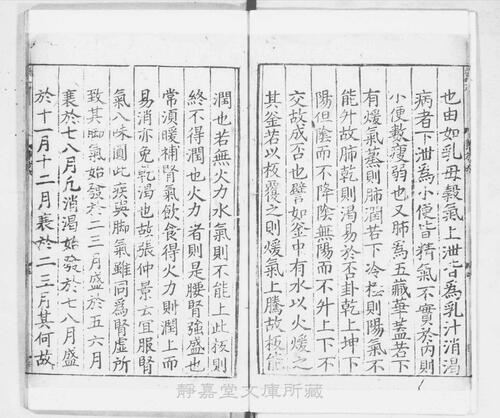 也由如乳母穀氣上泄皆爲乳汁消渴
病者下泄爲小便皆精氣不實於内則
小便數瘦弱也又肺爲五藏華盖若下
有煖氣蒸則肺潤若下冷極則陽氣不
能升故肺乾則渴易於否卦乾上坤下
陽但隂而不降隂無陽而不升上下不
交故成否也譬如釜中有水以火煖之
其釜若以板覆之則煖氣上騰故板能
潤也若無火力水氣則不能上此板則
終不得潤也火力者則是腰腎強盛也
常須暖補腎氣飲食得火力則潤上而
易消亦免乾渴也故張仲景云宜服腎
氣八味圓此疾與脚氣雖同爲腎虚所
致其脚氣始發於二三月盛於五六月
衰於七八月凡消渴始發於七八月盛
於十一月十二月衰於二三月其何故
靜嘉堂文庫所藏